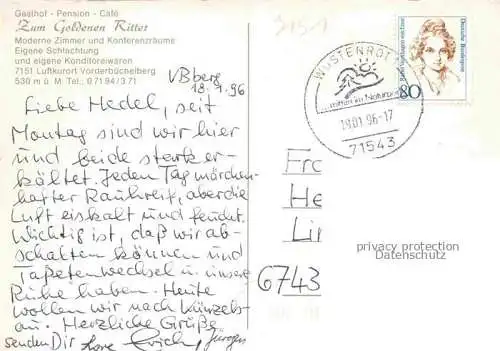 Gasthof - Pension - Café
Zum Goldenen Ritter
Moderne Zimmer und Konferenzräume
Eigene Schlachtung
und eigene Konditoreiwaren
7151 Luftkurort Vorderbüchelberg
530 m ü. M. Tel.: 0 71 94 / 3 71
VBberg
18.1.96
Liebe Hedel, seit
Montag sind wir hier
und beide stark er-
kältet. Jeden Tag märchen-
hafter Rauhreif, aber die
Luft eiskalt und feucht.
Wichtig ist, daß wir ab-
schalten können und
Tapetenwechsel u. unsere
Ruhe haben. Heute
wollen wir nach Künzels-
au. Herzliche Grüße
senden Dir Erich,
WÜSTENROT
mitten im Naturpark
18.01.96-17
71543
Deutsche Bundespost
80
Fr
He
Li
6743
privacy protection
Datenschutz